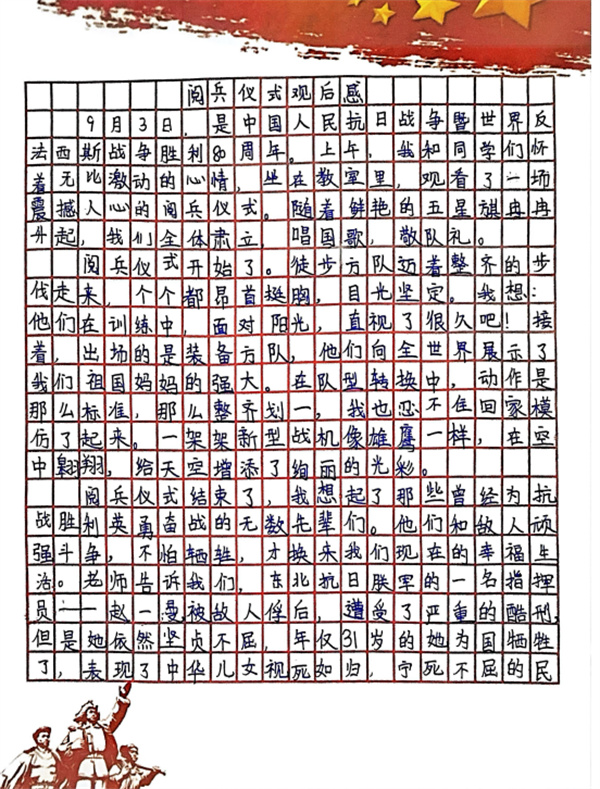 阅兵仪式观后感
9月3日，是中国人民抗日战争暨世界反
法西斯战争胜利80周年。上午，我和同学们怀
着无比激动的心情，坐在教室里，观看了一场
震撼人心的阅兵仪式。随着鲜艳的五星旗冉冉
升起，我们全体肃立，唱国歌，敬队礼。
阅兵仪式开始了。徒步方队迈着整齐的步
伐走来，个个都昂首挺胸，目光坚定。我想：
他们在训练中，面对阳光，直视了很久吧！接
着，出场的是装备方队，他们向全世界展示了
我们祖国妈妈的强大。在队型转换中，动作是
那么标准，那么整齐划一，我也忍不住回家模
仿了起来。一架架新型战机像雄鹰一样，在空
中翱翔，给天空增添了绚丽的光彩。
阅兵仪式结束了，我想起了那些曾经为抗
战胜利英勇奋战的无数先辈们。他们和敌人顽
强斗争，不怕牺牲，才换来我们现在的幸福生
活。老师告诉我们，东北抗日联军的一名指挥
员——赵一曼被敌人俘后，遭受了严重的酷刑，
但是她依然坚贞不屈，年仅31岁的她为国牺牲
了，表现了中华儿女视死如归，宁死不屈的民